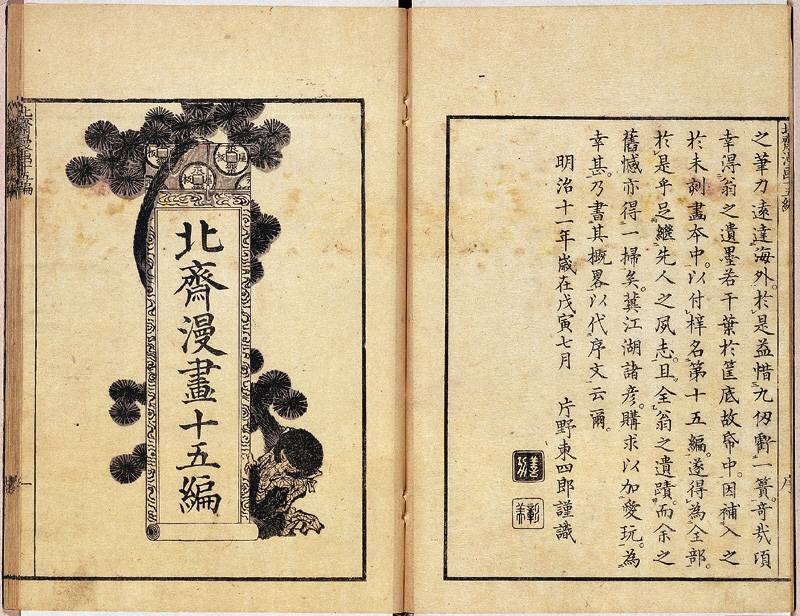 北齋漫畫十五編
序
之筆力遠達海外。於是益惜九仞虧一簣。奇哉頃
幸得翁之遺墨若干葉於筐底故帋中。因補入之
於未刻畫本中。以付梓名第十五編。遂得為全部。
於是乎足繼先人之夙志。且全翁之遺蹟。而余之
舊憾亦得一掃矣。冀江湖諸彦。購求以加愛玩。為
幸甚。乃書其概畧以代序文云爾。
明治十一年歳在戊寅七月　片野東四郎謹識
北齋漫畫十五編
一